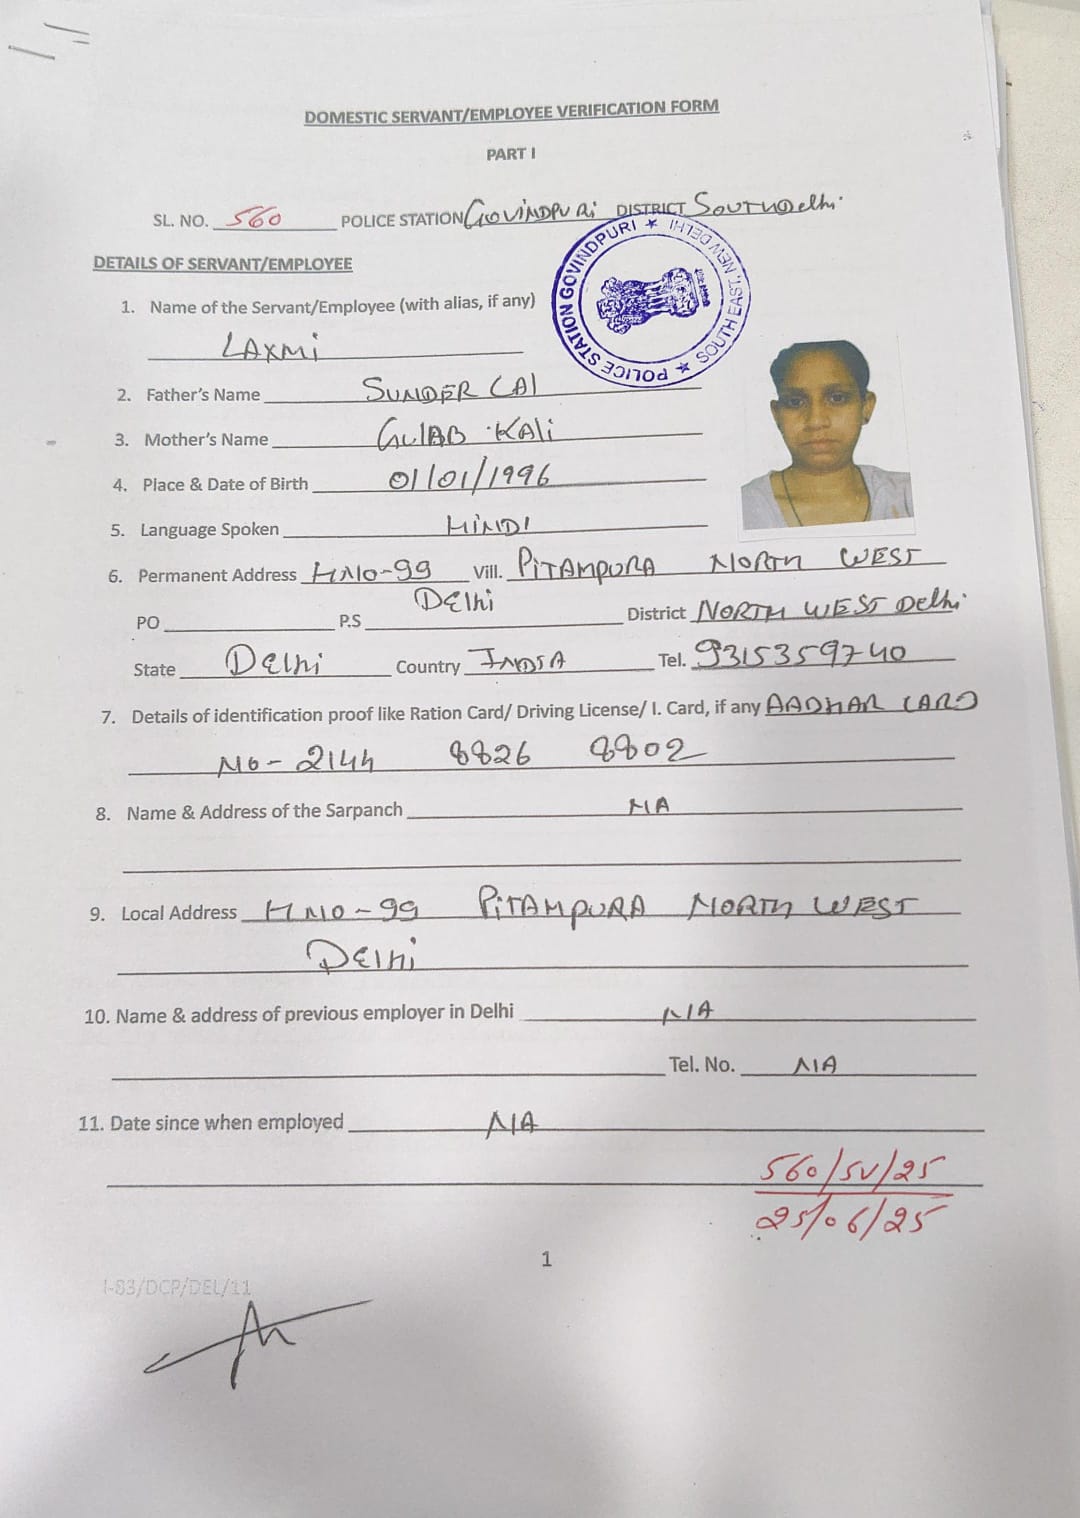 DOMESTIC SERVANT/EMPLOYEE VERIFICATION FORM
PART I
SL. NO. 560 POLICE STATION GOVINDPURI DISTRICT SOUTH Delhi
POLICE STATION GOVINDPURI ★ SOUTH EAST, NEW DELHI ★
DETAILS OF SERVANT/EMPLOYEE
1. Name of the Servant/Employee (with alias, if any)
LAXMi
2. Father's Name SUNDER LAl
3. Mother's Name GULAB KALi
4. Place & Date of Birth 01/01/1996
5. Language Spoken HiNDI
6. Permanent Address HNO-99 Vill. PiTAMPURA NORTH WEST
DElhi
PO P.S District NORTH WEST Delhi
State Delhi Country INDIA Tel. 9315359740
7. Details of identification proof like Ration Card/ Driving License/ I. Card, if any AADHAR CARD
NO- 2144 8826 8802
8. Name & Address of the Sarpanch NA
9. Local Address HNO-99 PiTAMPURA NORTH WEST
DElhi
10. Name & address of previous employer in Delhi N/A
Tel. No. N/A
11. Date since when employed N/A
560/SV/25
25/06/25
1
I-83/DCP/DEL/11